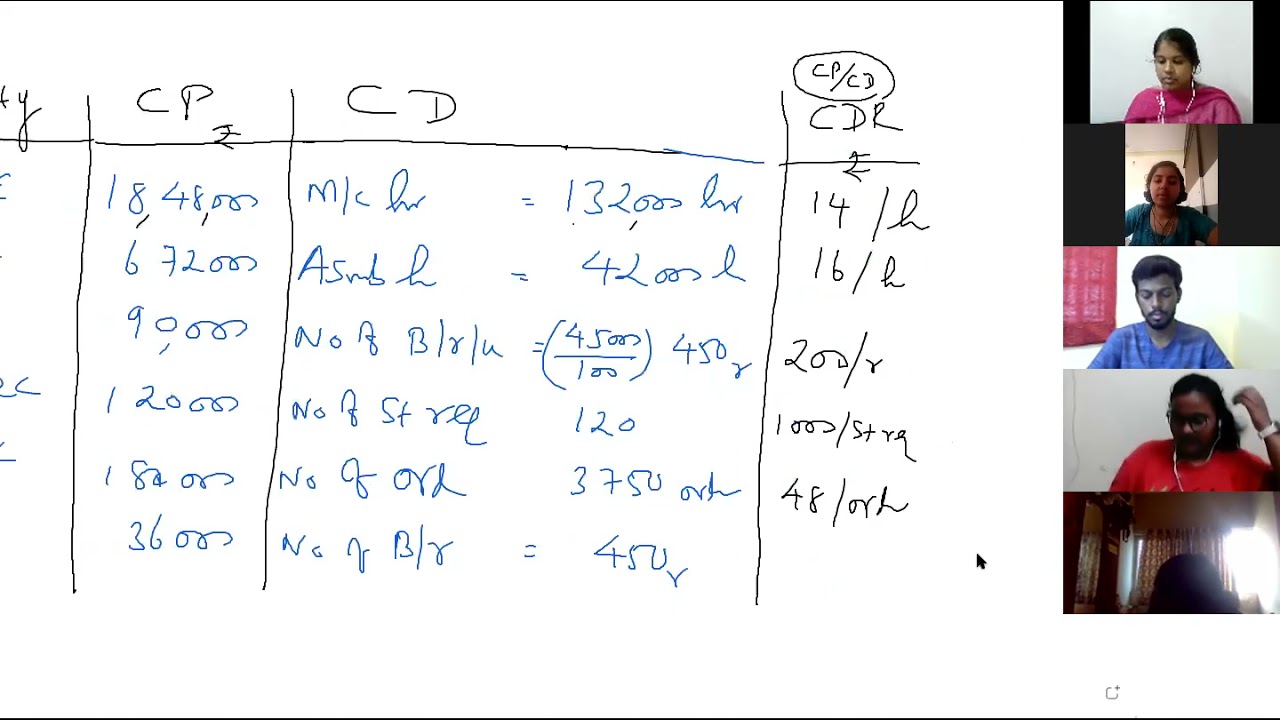 CP/CD
ty CP ₹ CD CDR ₹
18,48,000 M/c hr = 132,000 hr 14/h
6 72000 Asmb h = 42000 h 16/h
90,000 No of B/r/u = (4500/100) 450r 200/r
120000 No of St req 120 1000/St req
180000 No of ord 3750 orh 48/orh
36000 No of B/r = 450r